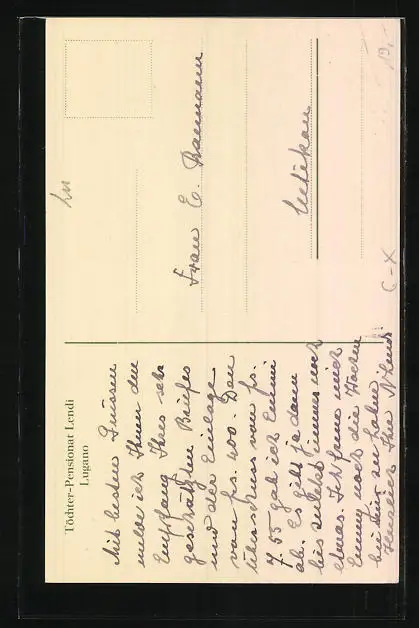 Töchter-Pensionat Lendi
Lugano
Mit besten Grüssen
melde ich Ihnen den
Empfang Ihres sehr
geschätzten Briefes
und der Einlage
von frs. 400. Den
Überschuss von frs.
7.55 gab ich Emmi
ab. Es gibt ja dann
bis zuletzt immer noch
etwas. Ich freue mich
Emmy noch die Wochen
bei mir zu haben
Herzlich Ihre
Frau E. Baumann
C-X
19,-